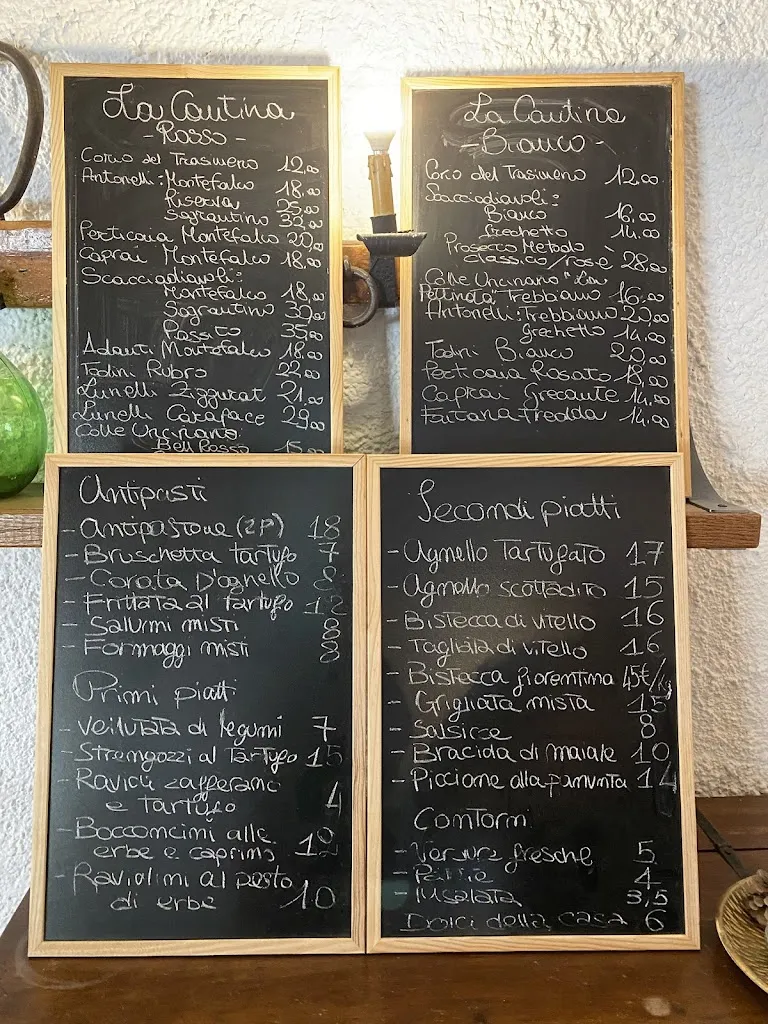 La Cantina
- Rosso -
Corio del Trasimeno 12,00
Antonelli: Montefalco 18,00
Riserva 25,00
Sagrantino 32,00
Perticaia Montefalco 20,00
Caprai Montefalco 18,00
Scacciadiavoli:
Montefalco 18,00
Sagrantino 30,00
Passito 35,00
Adanti Montefalco 18,00
Todini Rubro 22,00
Lunelli Ziggurat 21,00
Lunelli Carapace 29,00
Colle Uncinano:
Bell Rosso 15,00
La Cantina
- Bianco -
Corio del Trasimeno 12,00
Scacciadiavoli:
Bianco 16,00
Grechetto 14,00
Prosecco Metodo
classico/rosè 28,00
Colle Uncinano "La
Pettinata" Trebbiano 16,00
Antonelli: Trebbiano 20,00
Grechetto 14,00
Todini Bianco 20,00
Perticaia Rosato 18,00
Caprai Grecante 14,00
Fontanafredda 14,00
Antipasti
- Antipastone (2P) 18
- Bruschetta tartufo 7
- Corata D'agnello 8
- Frittata al tartufo 12
- Salumi misti 8
- Formaggi misti 8
Primi piatti
- Vellutata di legumi 7
- Strengozzi al Tartufo 15
- Ravioli zafferano
e tartufo
- Bocconcini alle
erbe e caprino 12
- Raviolini al pesto
di erbe 10
Secondi piatti
- Agnello Tartufato 17
- Agnello scottadito 15
- Bistecca di vitello 16
- Tagliata di vitello 16
- Bistecca fiorentina 45€/kg
- Grigliata mista 15
- Salsicce 8
- Braciola di maiale 10
- Piccione alla panunta 14
Contorni
- Verdure fresche 5
- 4
- Insalata 3,5
Dolci della casa 6